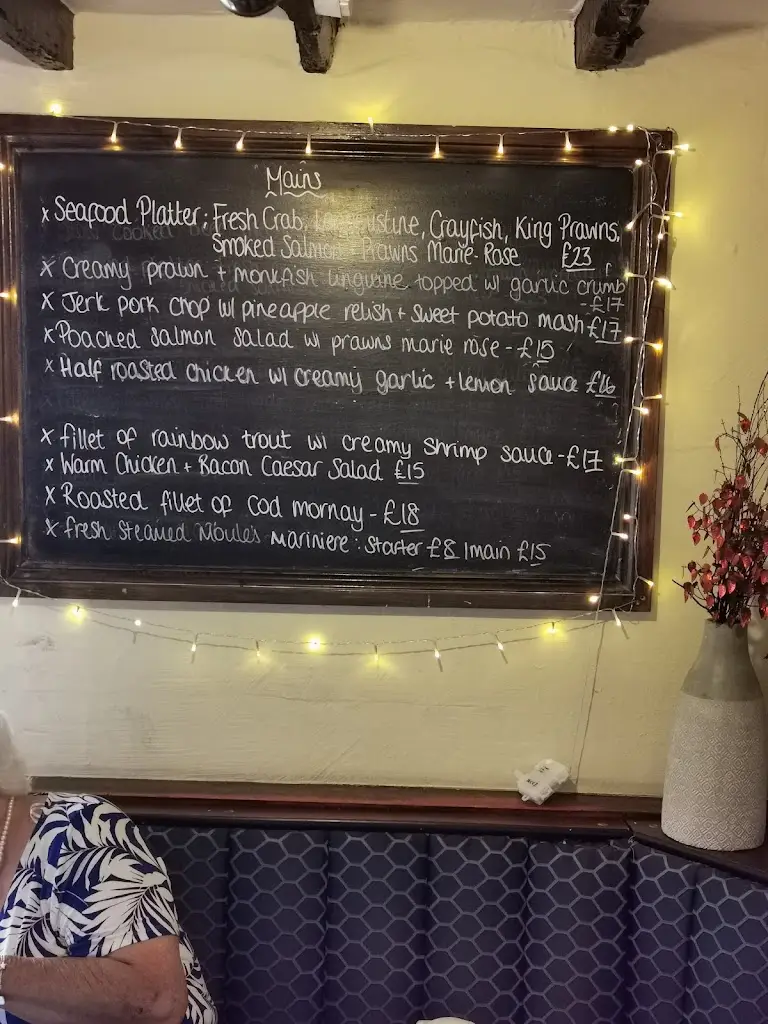 Mains
x Seafood Platter: Fresh Crab, Langoustine, Crayfish, King Prawns,
Smoked Salmon + Prawns Marie-Rose £23
x Creamy prawn + monkfish linguine topped w/ garlic crumb
-£17
x Jerk pork chop w/ pineapple relish + sweet potato mash £17
x Poached salmon salad w/ prawns marie rose - £15
x Half roasted chicken w/ creamy garlic + lemon sauce £16
x fillet of rainbow trout w/ creamy shrimp sauce - £17
x Warm Chicken + Bacon Caesar Salad £15
x Roasted fillet of Cod mornay - £18
x fresh steamed Moules Mariniere: starter £8 | main £15